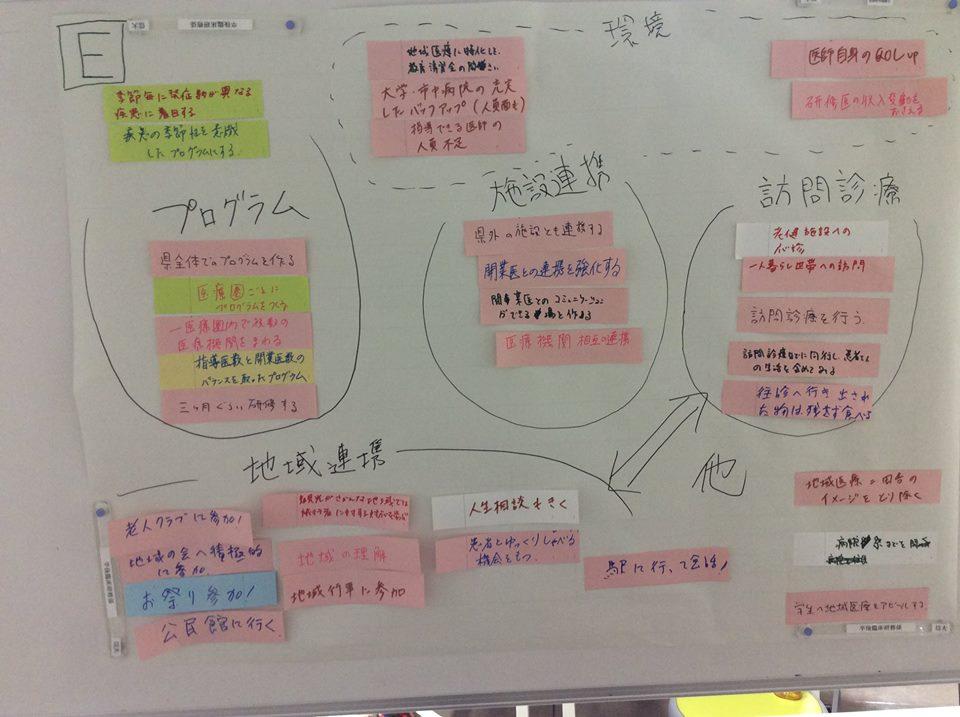 E
卒後臨床研修係
信大
環境
季節毎に発症数が異なる
疾患に着目する
疾患の季節性を意識
したプログラムにする。
地域医療に特化した
大学・市中病院の充実
したバックアップ(人員面も)
指導できる医師の
人員不足
医師自身のQOL up
研修医の収入
プログラム
県全体でのプログラムを作る
医療圏ごとに
プログラムをつくる
一医療圏内で複数の
医療機関をまわる
指導医数と開業医数の
バランスを取ったプログラム
三ヶ月ぐらい研修する
施設連携
県外の施設とも連携する
開業医との連携を強化する
開業医とのコミュニケーション
ができる場を作る
医療機関相互の連携
訪問診療
老健施設への
往診
一人暮らし世帯への訪問
訪問診療を行う
訪問診療などに同行し、患者さん
の生活を含めてみる
往診へ行き出され
た物は残さず食べる
地域連携
老人クラブに参加!
地域の会へ積極的
に参加
お祭り参加!
公民館に行く
地域の理解
地域行事に参加
人生相談もきく
患者とゆっくりしゃべる
機会をもつ
駅に行って会話!
他
地域医療=田舎の
イメージをとり除く
学生へ地域医療をアピールする
卒後臨床研修係
信大